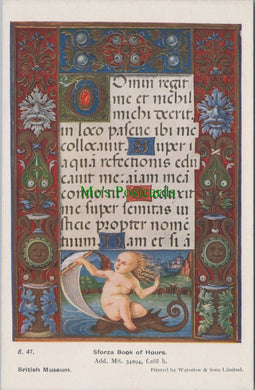 Dominus regit
me et nichil
michi deerit
in loco pascue ibi me
collocavit Super
aquã refectionis edu
cavit me: aiam mea
me super semitas iu
sticie propter nome
tuum Nam et si ã
Mo's Postcards
B. 41.
Sforza Book of Hours.
Add. MS. 34294, f.211 b.
British Museum.
Printed by Waterlow & Sons Limited.